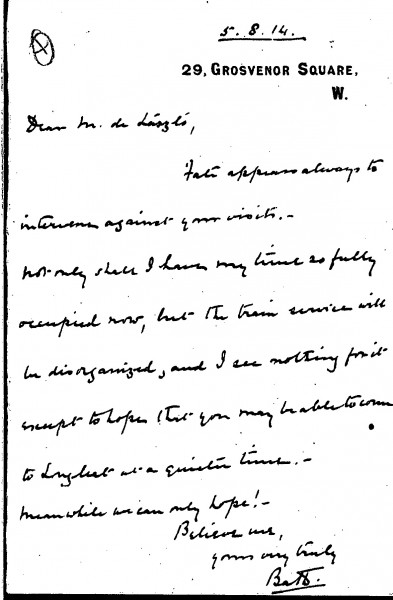 5.8.14.
29, GROSVENOR SQUARE,
W.
Dear Mr. de László,
Fate appears always to
intervene against your visits.-
Not only shall I have my time so fully
occupied now, but the train service will
be disorganized, and I see nothing for it
except to hope that you may be able to come
to Longleat at a quieter time.-
Meanwhile we can only hope!-
Believe me,
yours very truly
Bath.